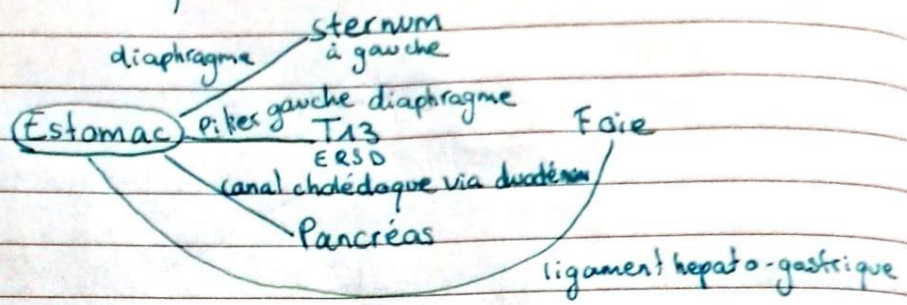 sternum
à gauche
diaphragme
Estomac
piliers gauche diaphragme
T13
ERSD
Foie
canal cholédoque via duodénum
Pancréas
ligament hepato-gastrique